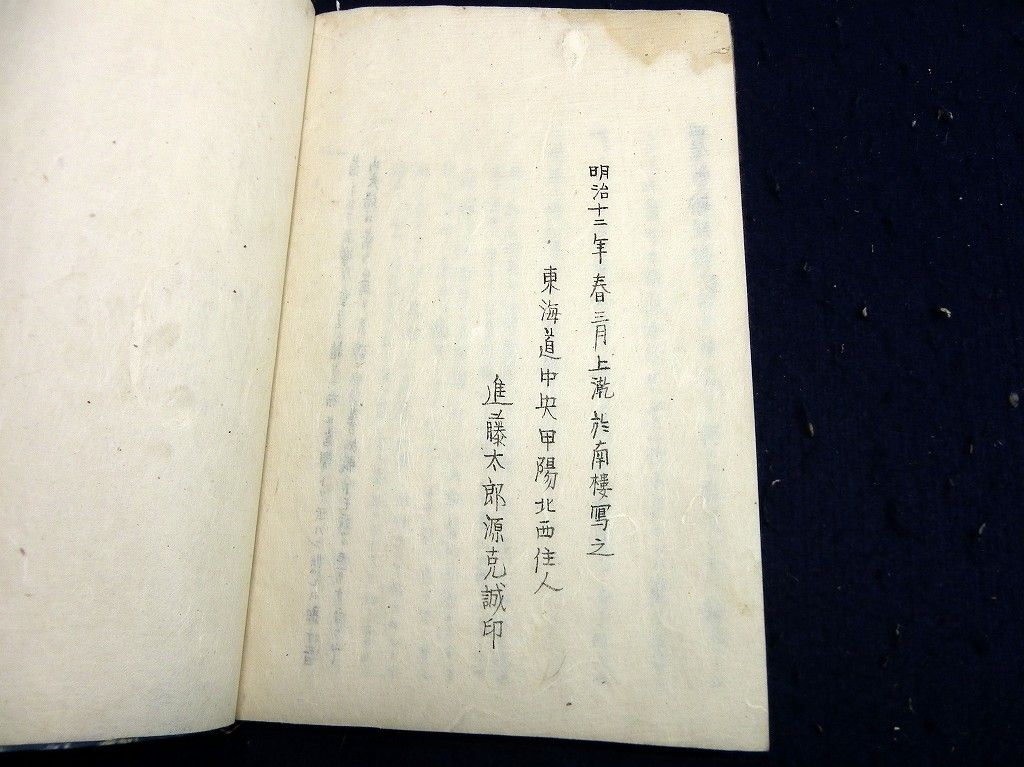 明治十二年春三月上澣於南樓寫之
東海道中央甲陽北西住人
進藤太郎源克誠印